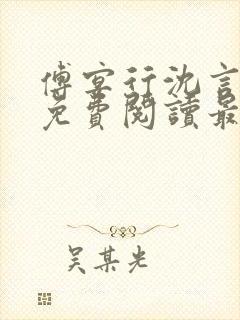 傅宴行沈言
免費閱讀最
吴某光